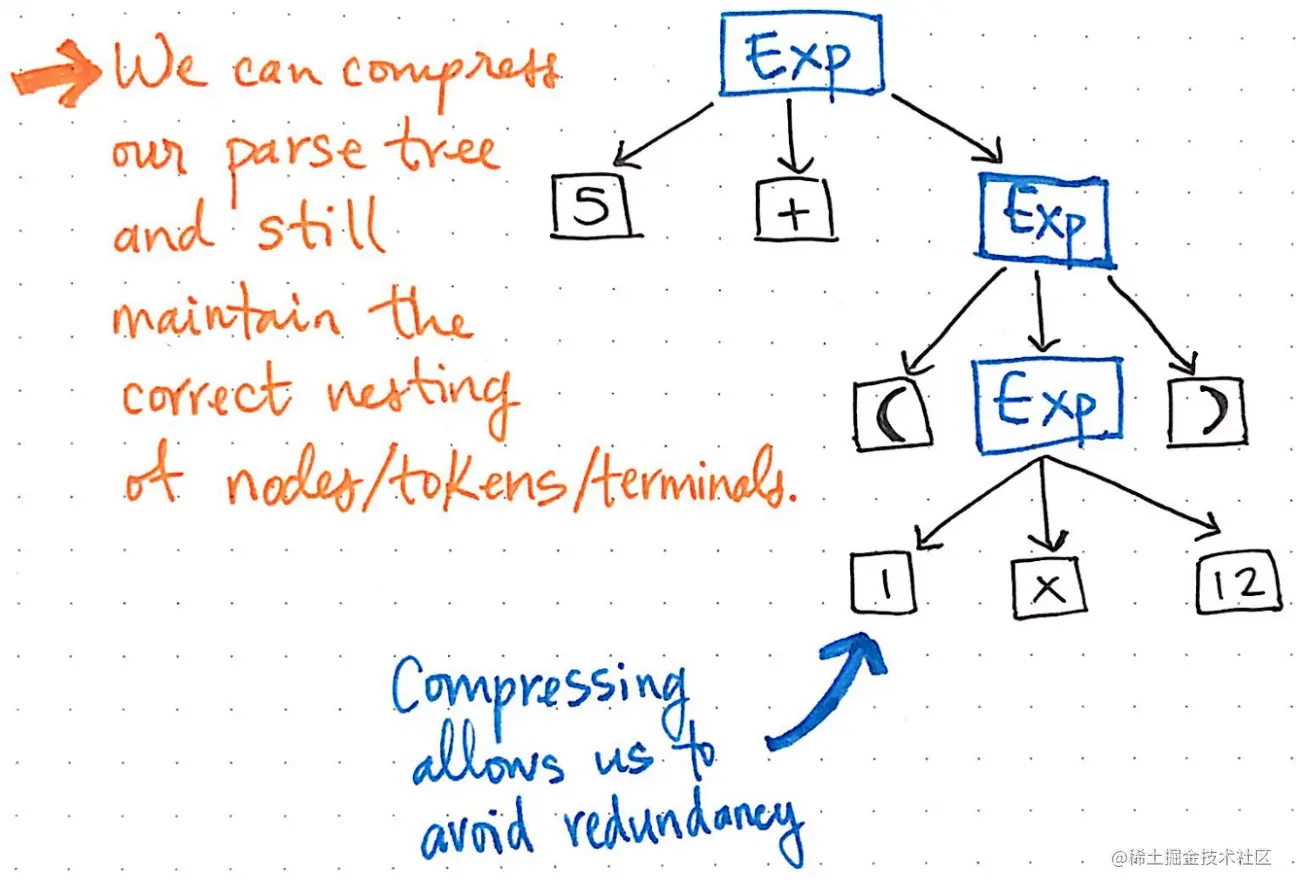 We can compress
our parse tree
and still
maintain the
correct nesting
of nodes/tokens/terminals.
Exp
5
+
Exp
(
Exp
)
1
x
12
Compressing
allows us to
avoid redundancy
@稀土掘金技术社区